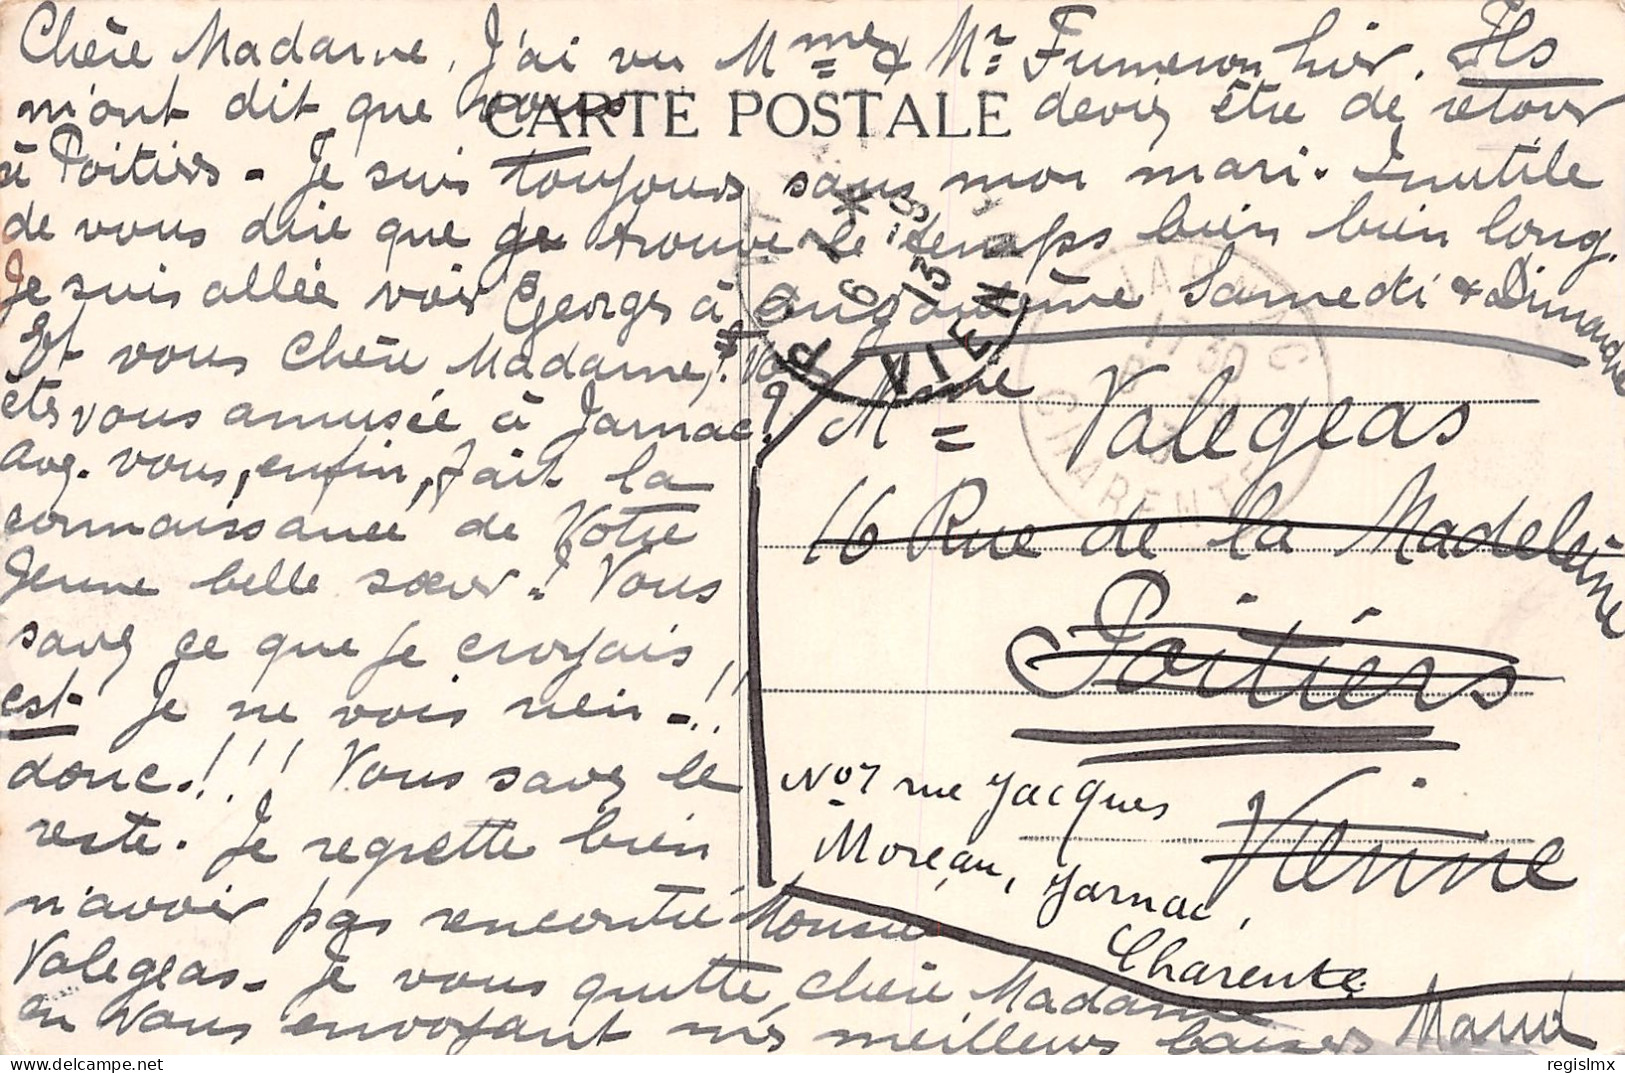 Chère Madame, J'ai vu Mme & Mr Fumeron hier. Ils
m'ont dit que vous deviez être de retour
CARTE POSTALE
à Poitiers - Je suis toujours sans mon mari. Inutile
de vous dire que je trouve le temps bien bien long.
Je suis allée voir Georges à Angoulême Samedi & Dimanche
Et vous Chère Madame, Vs
êtes vous amusée à Jarnac?
Avez-vous, enfin, fait la
connaissance de Votre
Jeune belle sœur! Vous
savez ce que je croyais,
est- Je ne vois rien -!!
donc!!! Vous savez le
reste. Je regrette bien
n'avoir pas rencontré Monsieur
Valegeas - Je vous quitte, chère Madame
en Vous envoyant mes meilleurs baisers
Mme Valegeas
16 Rue de la Madeleine
Poitiers
Vienne
No 7 rue Jacques
Moreau, Jarnac,
Charente
JARNAC
17 30
CHARENTE
VIEN
regislmx